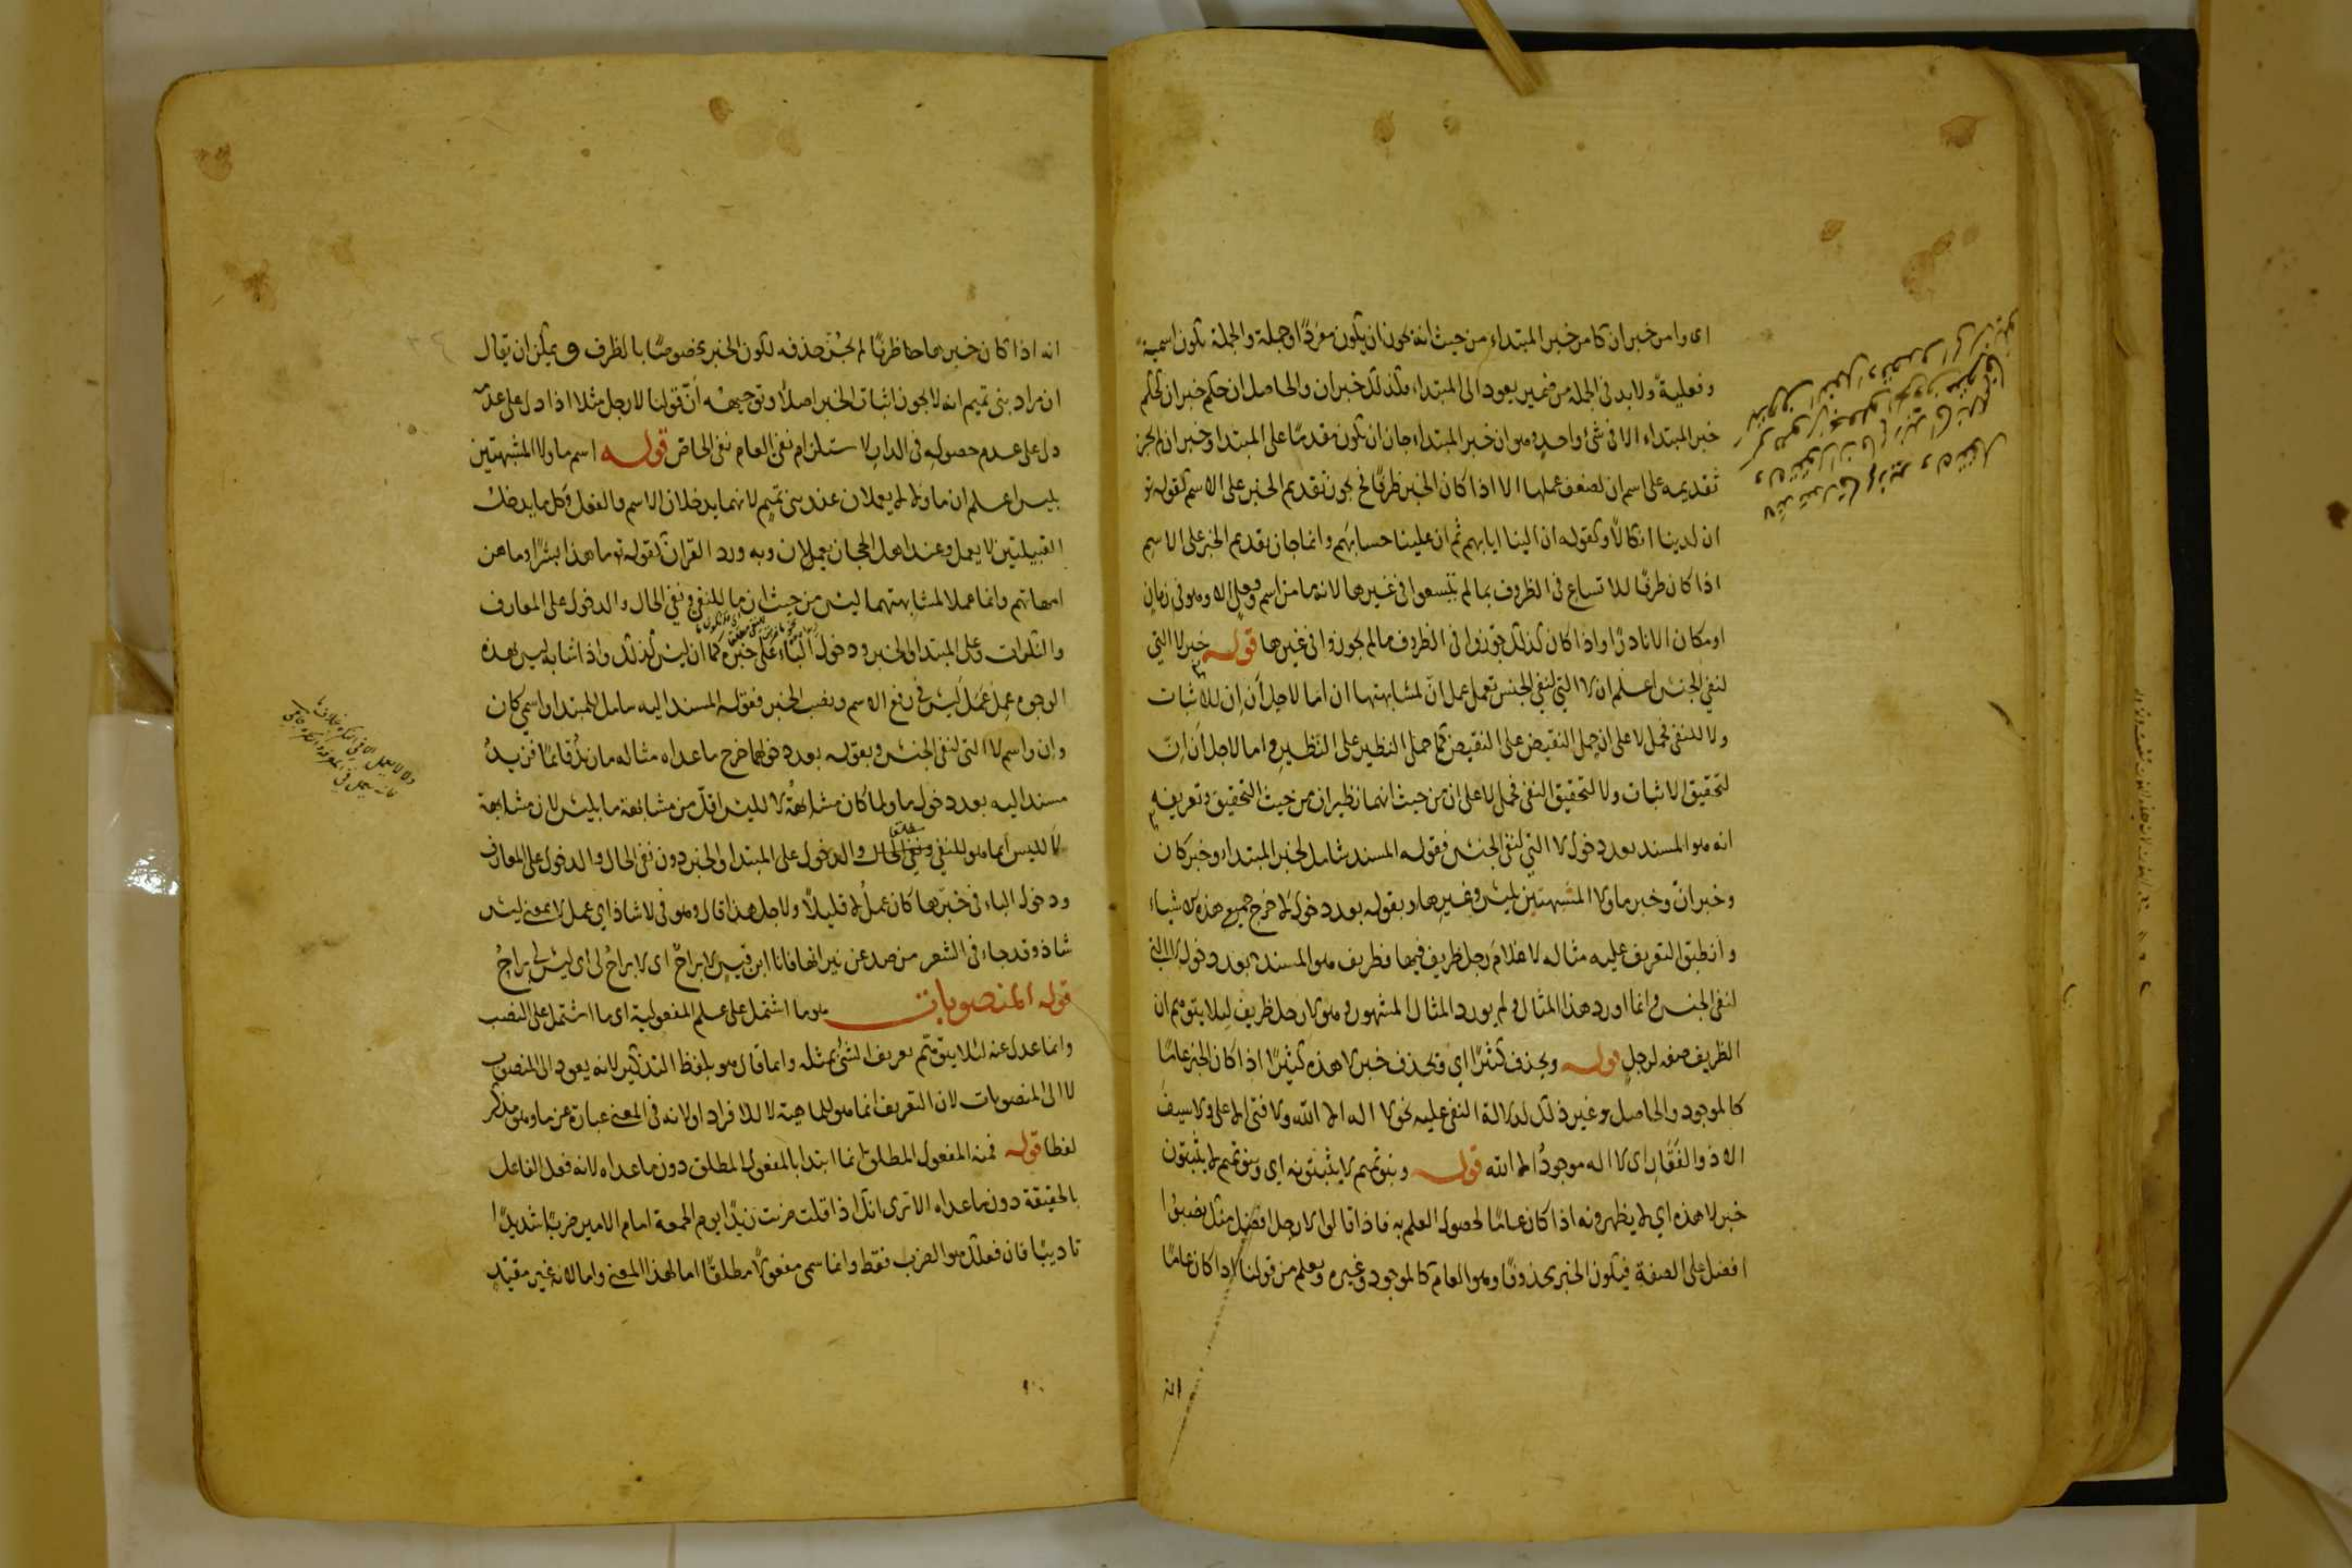 اى وامر خبر ان كامر خبر المبتداء من حيث انه يجوز ان يكون مفردًا وجملة والجملة تكون اسمية
وفعلية ولابد فى الجملة من ضمير يعود الى المبتداء فكذلك خبر ان والحاصل ان حكم خبر ان كحكم
خبر المبتداء الا فى شئ واحد وهو ان خبر المبتداء جاز ان يكون مقدمًا على المبتدا وخبر ان لم يجز
تقديمه على اسم ان لضعف عملها الا اذا كان الخبر ظرفًا فح يجوز تقديم الخبر على الاسم كقوله تع
ان لدينا انكالًا وكقوله ان الينا ايابهم ثم ان علينا حسابهم وانما جاز تقديم الخبر على الاسم
اذا كان ظرفًا للاتساع فى الظروف بما لم يتسعوا فى غيرها لانه ما من اسم وفعل الا وهو فى زمان
او مكان الا نادرًا واذا كان كذلك جوزوا فى الظروف ما لم يجوزوا فى غيرها قوله خبر لا التى
لنفى الجنس اعلم ان لا التى لنفى الجنس تعمل عمل انّ لمشابهتها ان اما لاجل أن إن للاثبات
ولا للنفى فحمل لا على ان حمل النقيض على النقيض كما حمل النظير على النظير واما لاجل أن إنّ
لتحقيق الاثبات ولا لتحقيق النفى فحمل لا على ان من حيث انهما نظيران من حيث التحقيق وتعريفه
انه هو المسند بعد دخول لا التى لنفى الجنس فقوله المسند شامل لخبر المبتداء وخبر كان
وخبر انّ وخبر ما ولا المشبهتين بليس وغيرها وبقوله بعد دخول لا خرج جميع هذه الاشياء
وانطبق التعريف عليه مثاله لا غلامَ رجل ظريف فيها فظريف هو المسند بعد دخول لا التى
لنفى الجنس وانما اورد هذا المثال ولم يورد المثال المشهور وهو لا رجل ظريف لئلا يتوهم ان
الظريف صفة لرجل قوله ويحذف كثيرًا اي ويحذف خبر لا هذه كثيرًا اذا كان الخبر عامًا
كالموجود والحاصل وغير ذلك لدلالة النفى عليه نحو لا اله الا الله ولا فتى الا على ولا سيف
الا ذو الفقار اى لا اله موجودٌ الا الله قوله وبنو تميم لا يثبتونه اي وبنو تميم لا يثبتون
خبر لا هذه اي لا يظهرونه اذا كان عامًا لحصول العلم به فاذا قالوا لا رجل افضل مثل يضبوا
افضل على الصفة فيكون الخبر محذوفًا وهو العام كالموجود وغيره ويعلم من قولنا اذا كان عامًا
انه
انه اذا كان خبرها خاصا ظرفًا لم يجز حذفه لكون الخبر مخصوصًا بالظرف ويمكن ان يقال
ان مراد بنى تميم انه لا يجوز اثبات الخبر اصلًا وتوجيهه أنّ قولنا لا رجل مثلا اذا دل على عدمه
دل على عدم حصوله فى الدار لاستلزام نفى العام نفى الخاص قوله اسم ما ولا المشبهتين
بليس اعلم ان ما ولا لا يعملان عند بنى تميم لانهما يدخلان الاسم والفعل وكل ما يدخل
القبيلتين لا يعمل وعند اهل الحجاز يعملان وبه ورد القرآن كقوله تع ما هذا بشرًا وما هن
امهاتهم وانما عملا لمشابهتهما ليس من حيث ان ما للنفى ونفى الحال والدخول على المعارف
والنكرات وعلى المبتدا والخبر ودخول الباء على خبره كما ان ليس كذلك واذا شابه ليس بهذه
الوجوه عمل عَمَلَ ليس فى رفع الاسم ونصب الخبر فقوله المسند اليه شامل للمبتدا واسمى كان
وان واسم لا التى لنفى الجنس وبقوله بعد دخولهما خرج ما عداه مثاله ما زيدٌ قائمًا فزيدٌ
مسند اليه بعد دخول ما ولما كان مشابهةُ لا لليس اقلّ من مشابهة ما بليس لان مشابهة
لا لليس أنما هو للنفى ونفى الحال والدخول على المبتدا والخبر دون نفى الحال والدخول على المعارف
ودخول الباء فى خبرها كان عملُ لا قليلًا ولاجل هذا قال وهو فى لا شاذ اي عمل لا بمعنى ليس
شاذ وقد جاء فى الشعر من صد عن نيرانها فانا ابن قيس لا براحُ اى لا براحُ لى اى ليس لى براحٌ
قوله المنصوبات هو ما اشتمل على علم المفعولية اى ما اشتمل على النصب
وانما عدل عنه لئلا يتوهم تعريف الشئ بمثله وانما قال هو بلفظ التذكير لانه يعود الى المنصوب
لا الى المنصوبات لان التعريف انما هو للماهية لا للافراد او لانه فى المعنى عبارة عن ما وهو مذكر
لفظا قوله فمنه المفعول المطلق انما ابتدا بالمفعول المطلق دون ما عداه لانه فعل الفاعل
بالحقيقة دون ما عداه الا ترى انك اذا قلت ضربت زيدًا يوم الجمعة امام الامير ضربًا شديدًا
تاديبًا فان فعلك هو الضرب فقط وانما سمى مفعولًا مطلقًا اما لهذا المعنى واما لانه غير مقيد